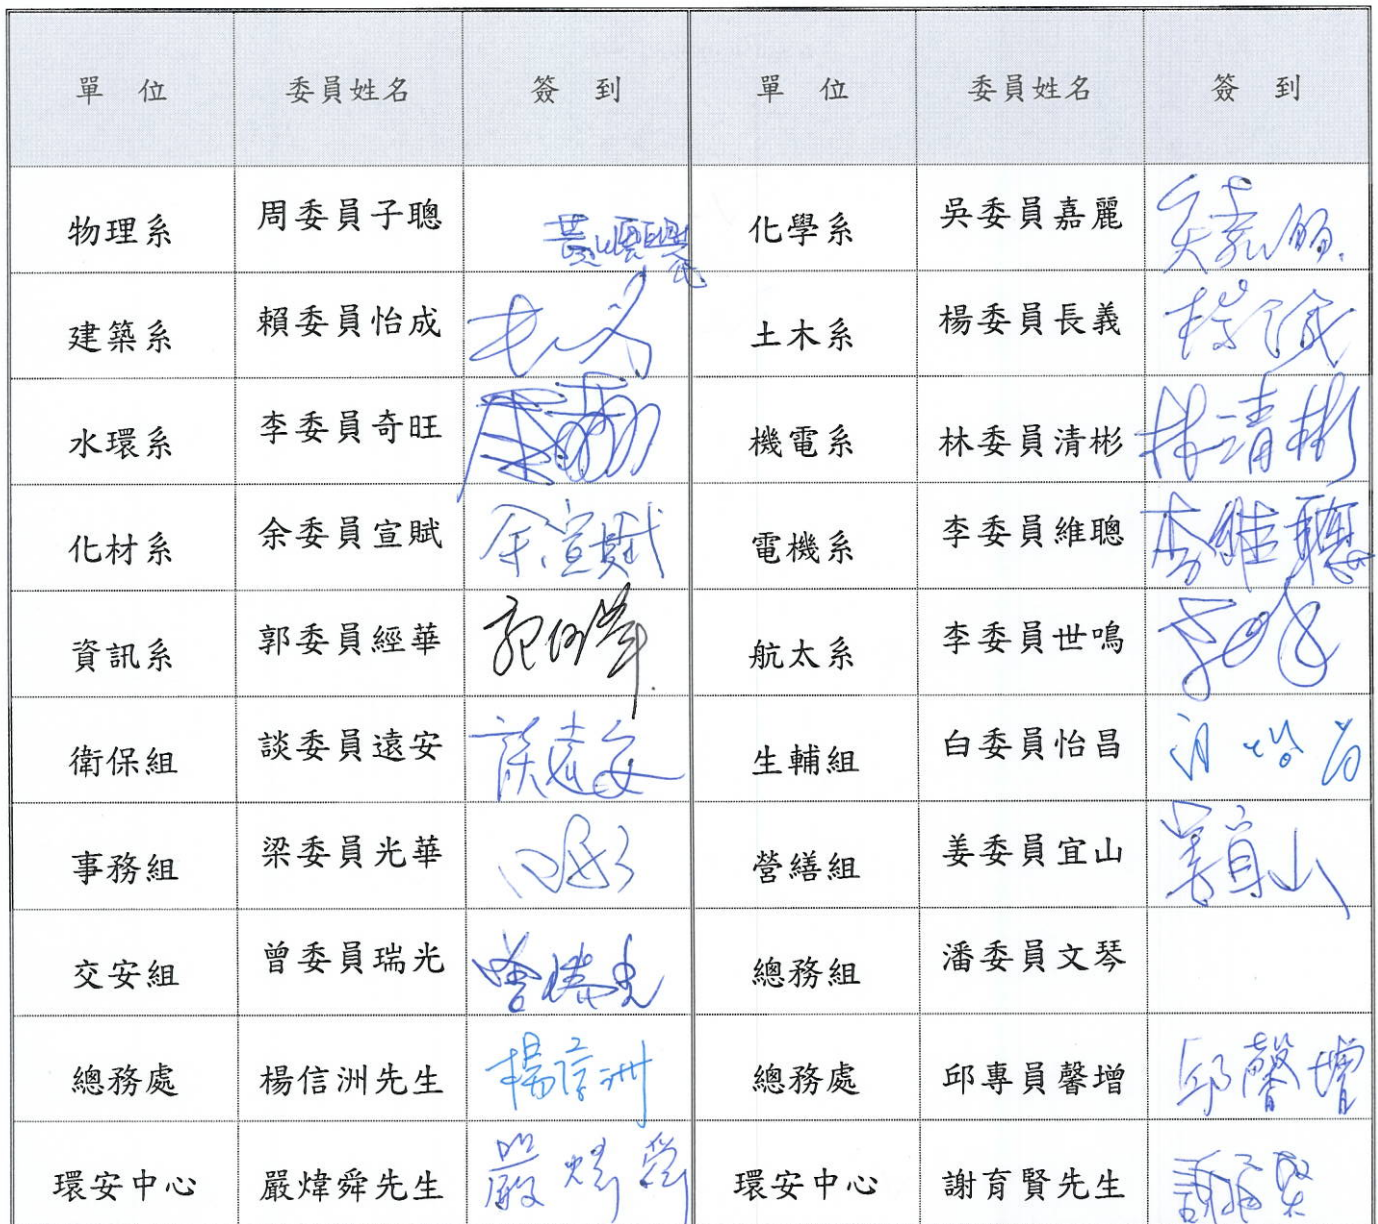 單 位 委員姓名 簽 到 單 位 委員姓名 簽 到
物理系 周委員子聰 化學系 吳委員嘉麗 吳嘉麗
建築系 賴委員怡成 土木系 楊委員長義
水環系 李委員奇旺 機電系 林委員清彬 林清彬
化材系 余委員宣賦 余宣賦 電機系 李委員維聰 李維聰
資訊系 郭委員經華 航太系 李委員世鳴
衛保組 談委員遠安 談遠安 生輔組 白委員怡昌
事務組 梁委員光華 營繕組 姜委員宜山 姜宜山
交安組 曾委員瑞光 總務組 潘委員文琴
總務處 楊信洲先生 楊信洲 總務處 邱專員馨增 邱馨增
環安中心 嚴煒舜先生 嚴煒舜 環安中心 謝育賢先生 謝育賢